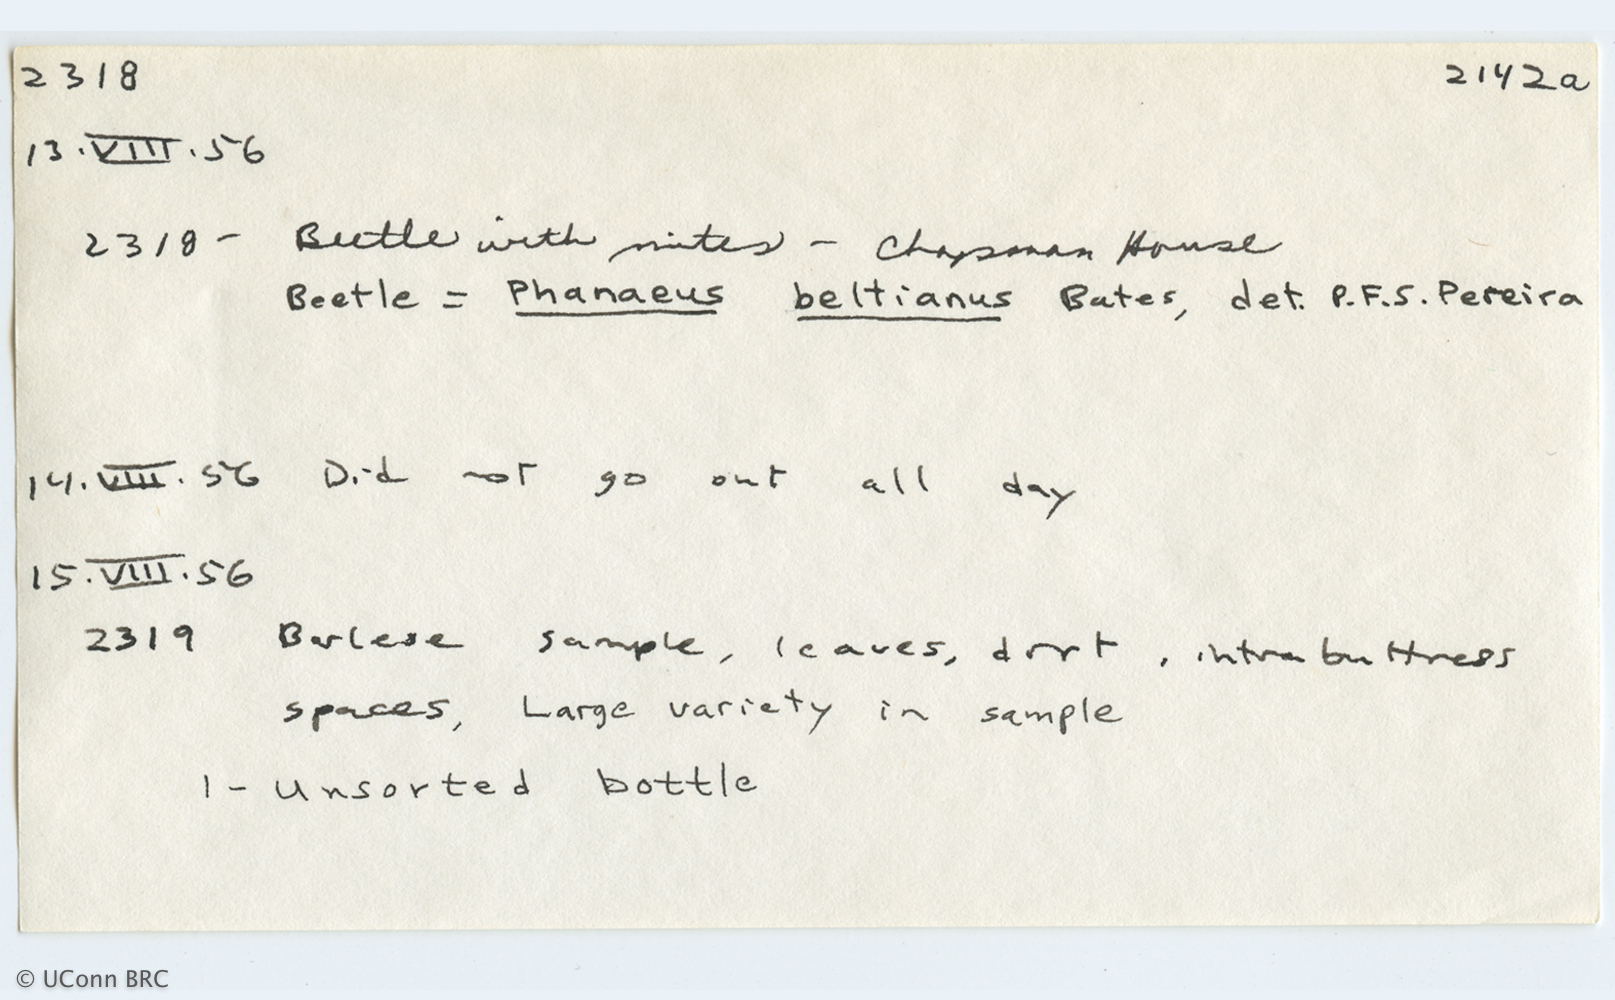 2318 2142a
13.VIII.56
2318 - Beetle with mites - Chapman House
Beetle = Phanaeus beltianus Bates, det. P.F.S. Pereira
14.VIII.56 Did not go out all day
15.VIII.56
2319 Berlese sample, leaves, dirt, intrabuttress
spaces, Large variety in sample
1- Unsorted bottle
© UConn BRC